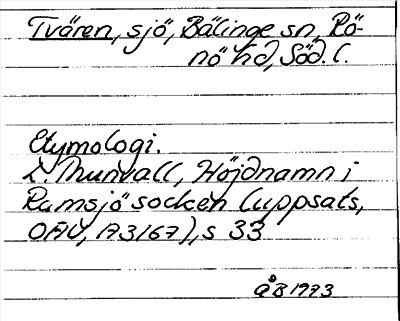 Tvären, sjö, Bälinge sn, Rö-
nö hd, Söd. l.
Etymologi.
L. Thunvall, Höjdnamn i
Ramsjö socken (uppsats,
OAU, A3167), s 33
ÅB 1973